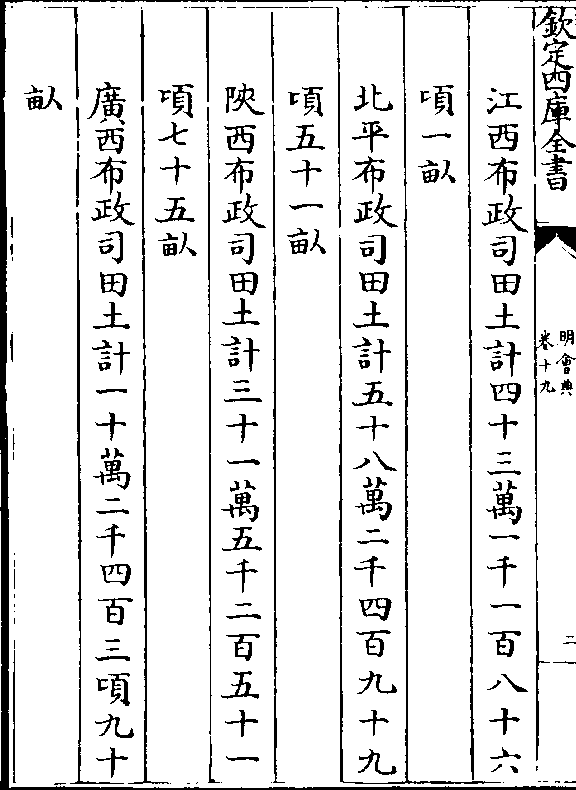 欽定四庫全書
明會典
卷十九
二
江西布政司田土計四十三萬一千一百八十六
頃一畝
北平布政司田土計五十八萬二千四百九十九
頃五十一畝
陜西布政司田土計三十一萬五千二百五十一
頃七十五畝
廣西布政司田土計一十萬二千四百三頃九十
畝